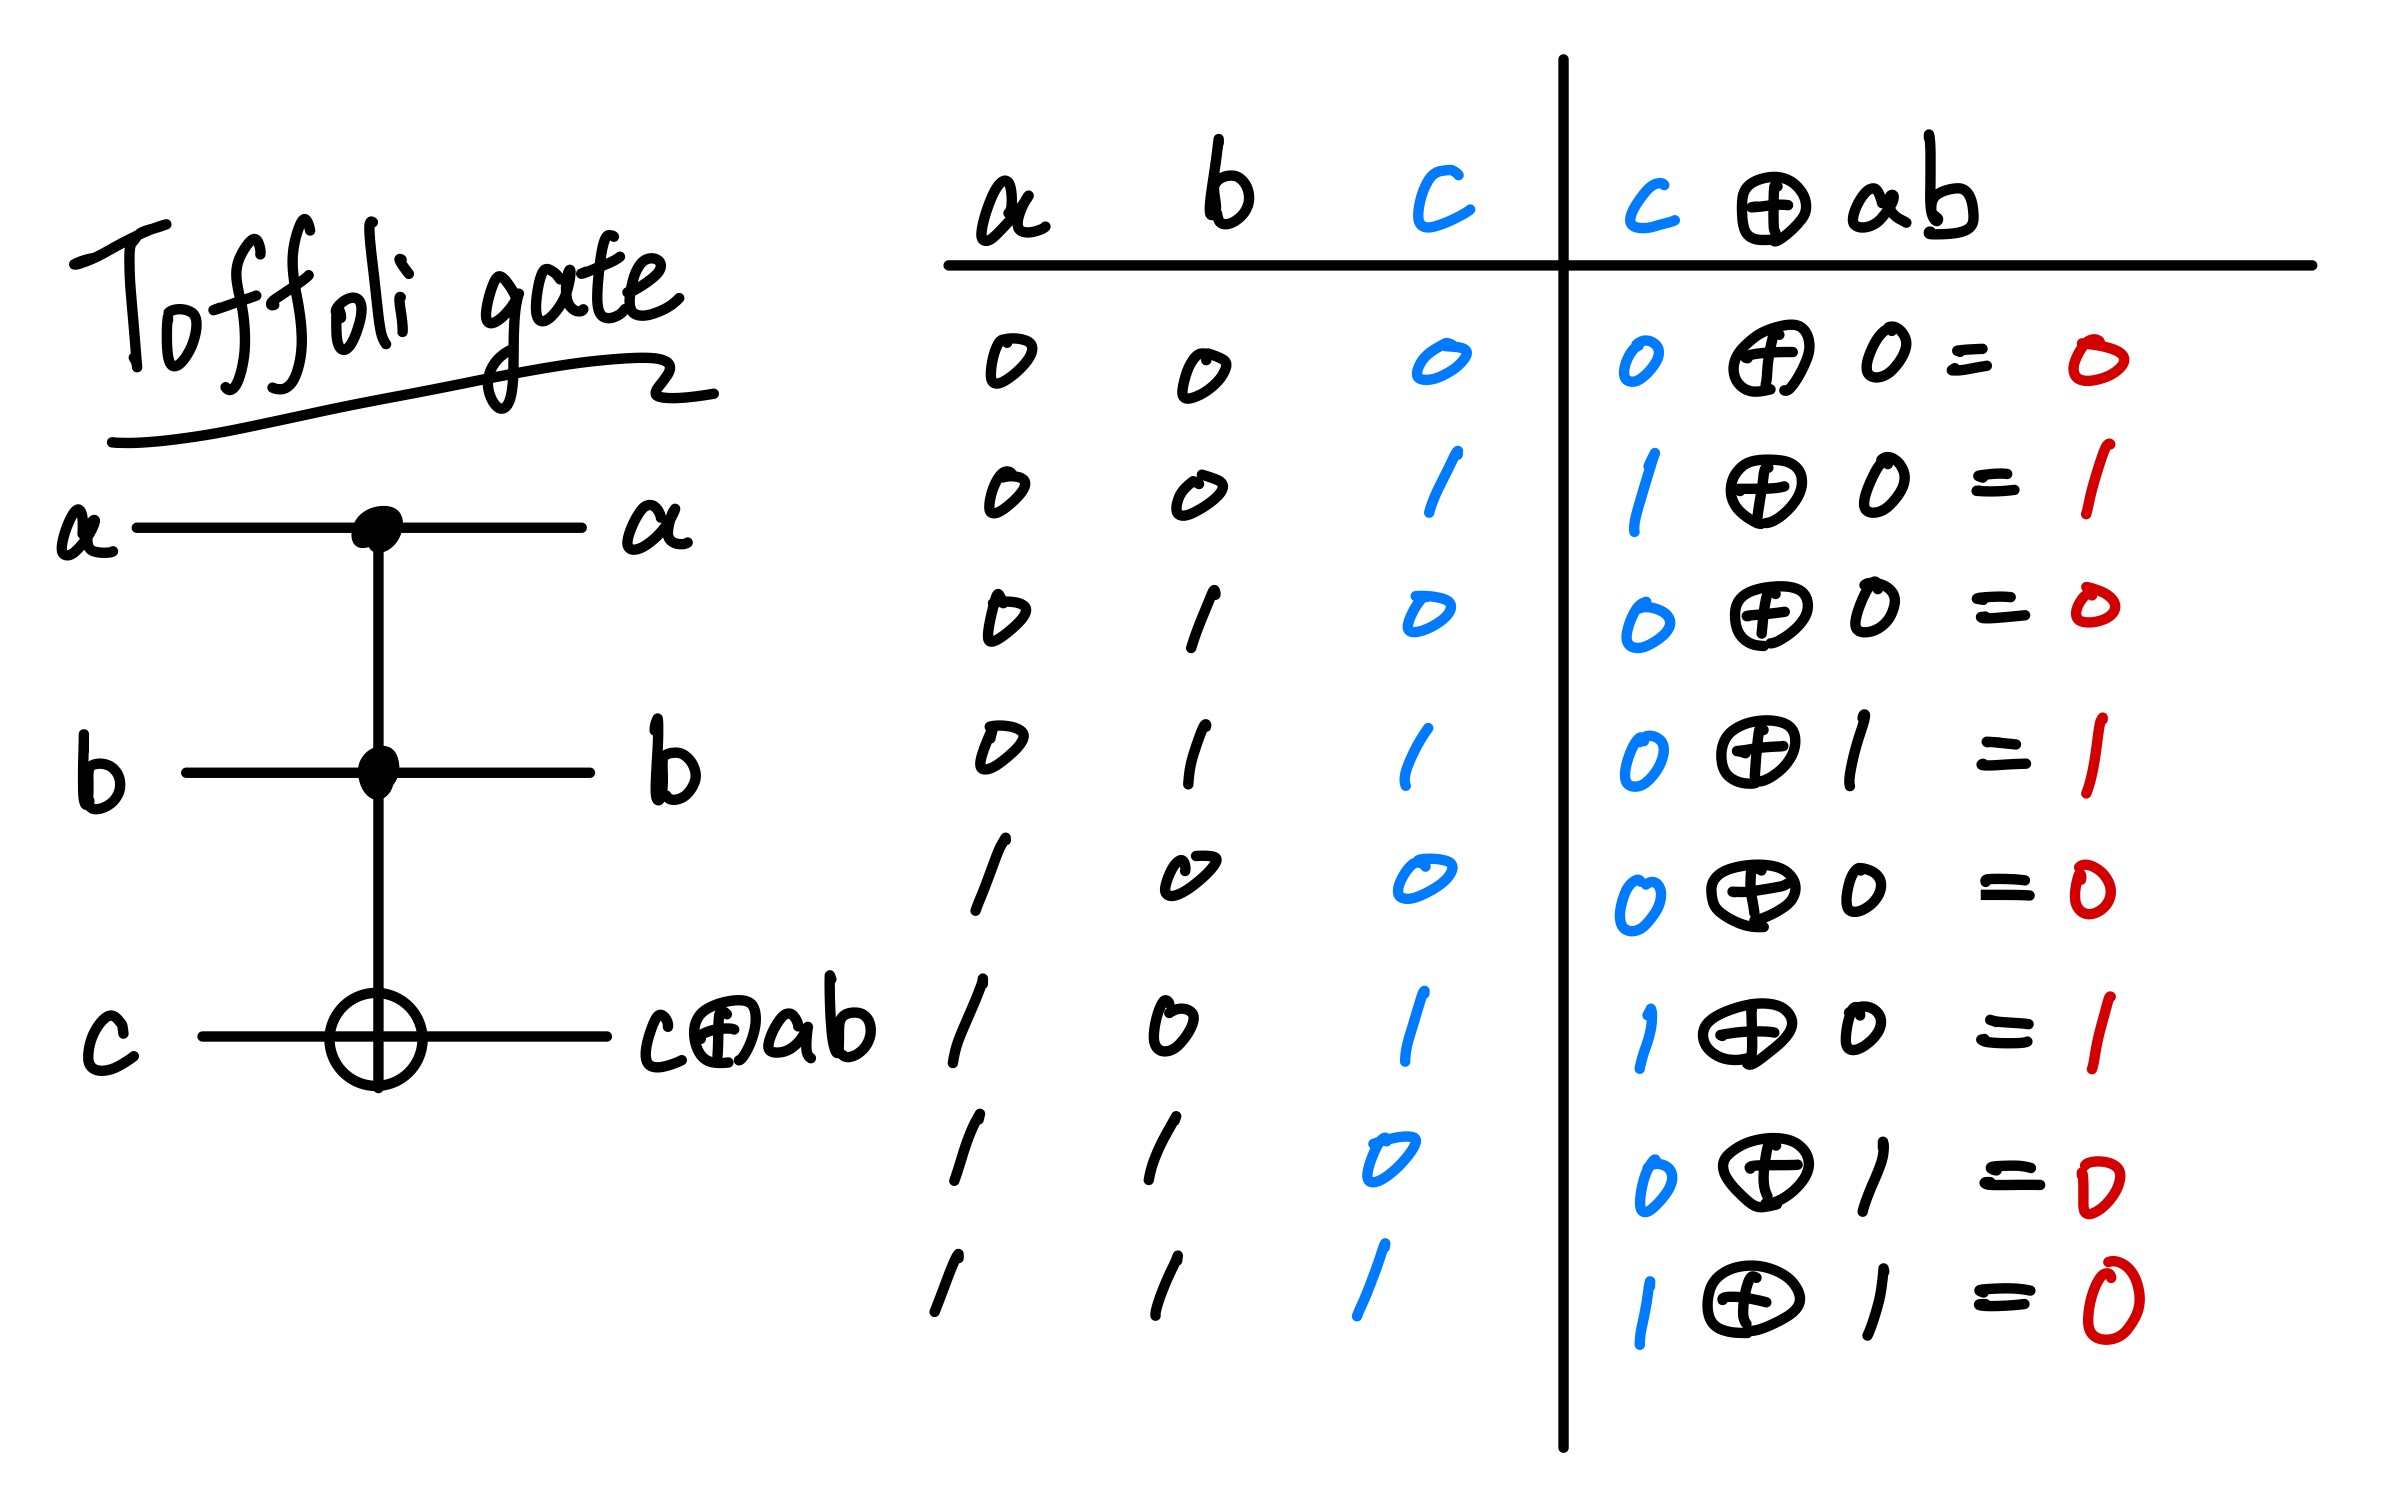 Toffoli gate
a a
b b
c c⊕ab
a b c c ⊕ ab
0 0 0 0 ⊕ 0 = 0
0 0 1 1 ⊕ 0 = 1
0 1 0 0 ⊕ 0 = 0
0 1 1 0 ⊕ 1 = 1
1 0 0 0 ⊕ 0 = 0
1 0 1 1 ⊕ 0 = 1
1 1 0 0 ⊕ 1 = 0
1 1 1 1 ⊕ 1 = 0